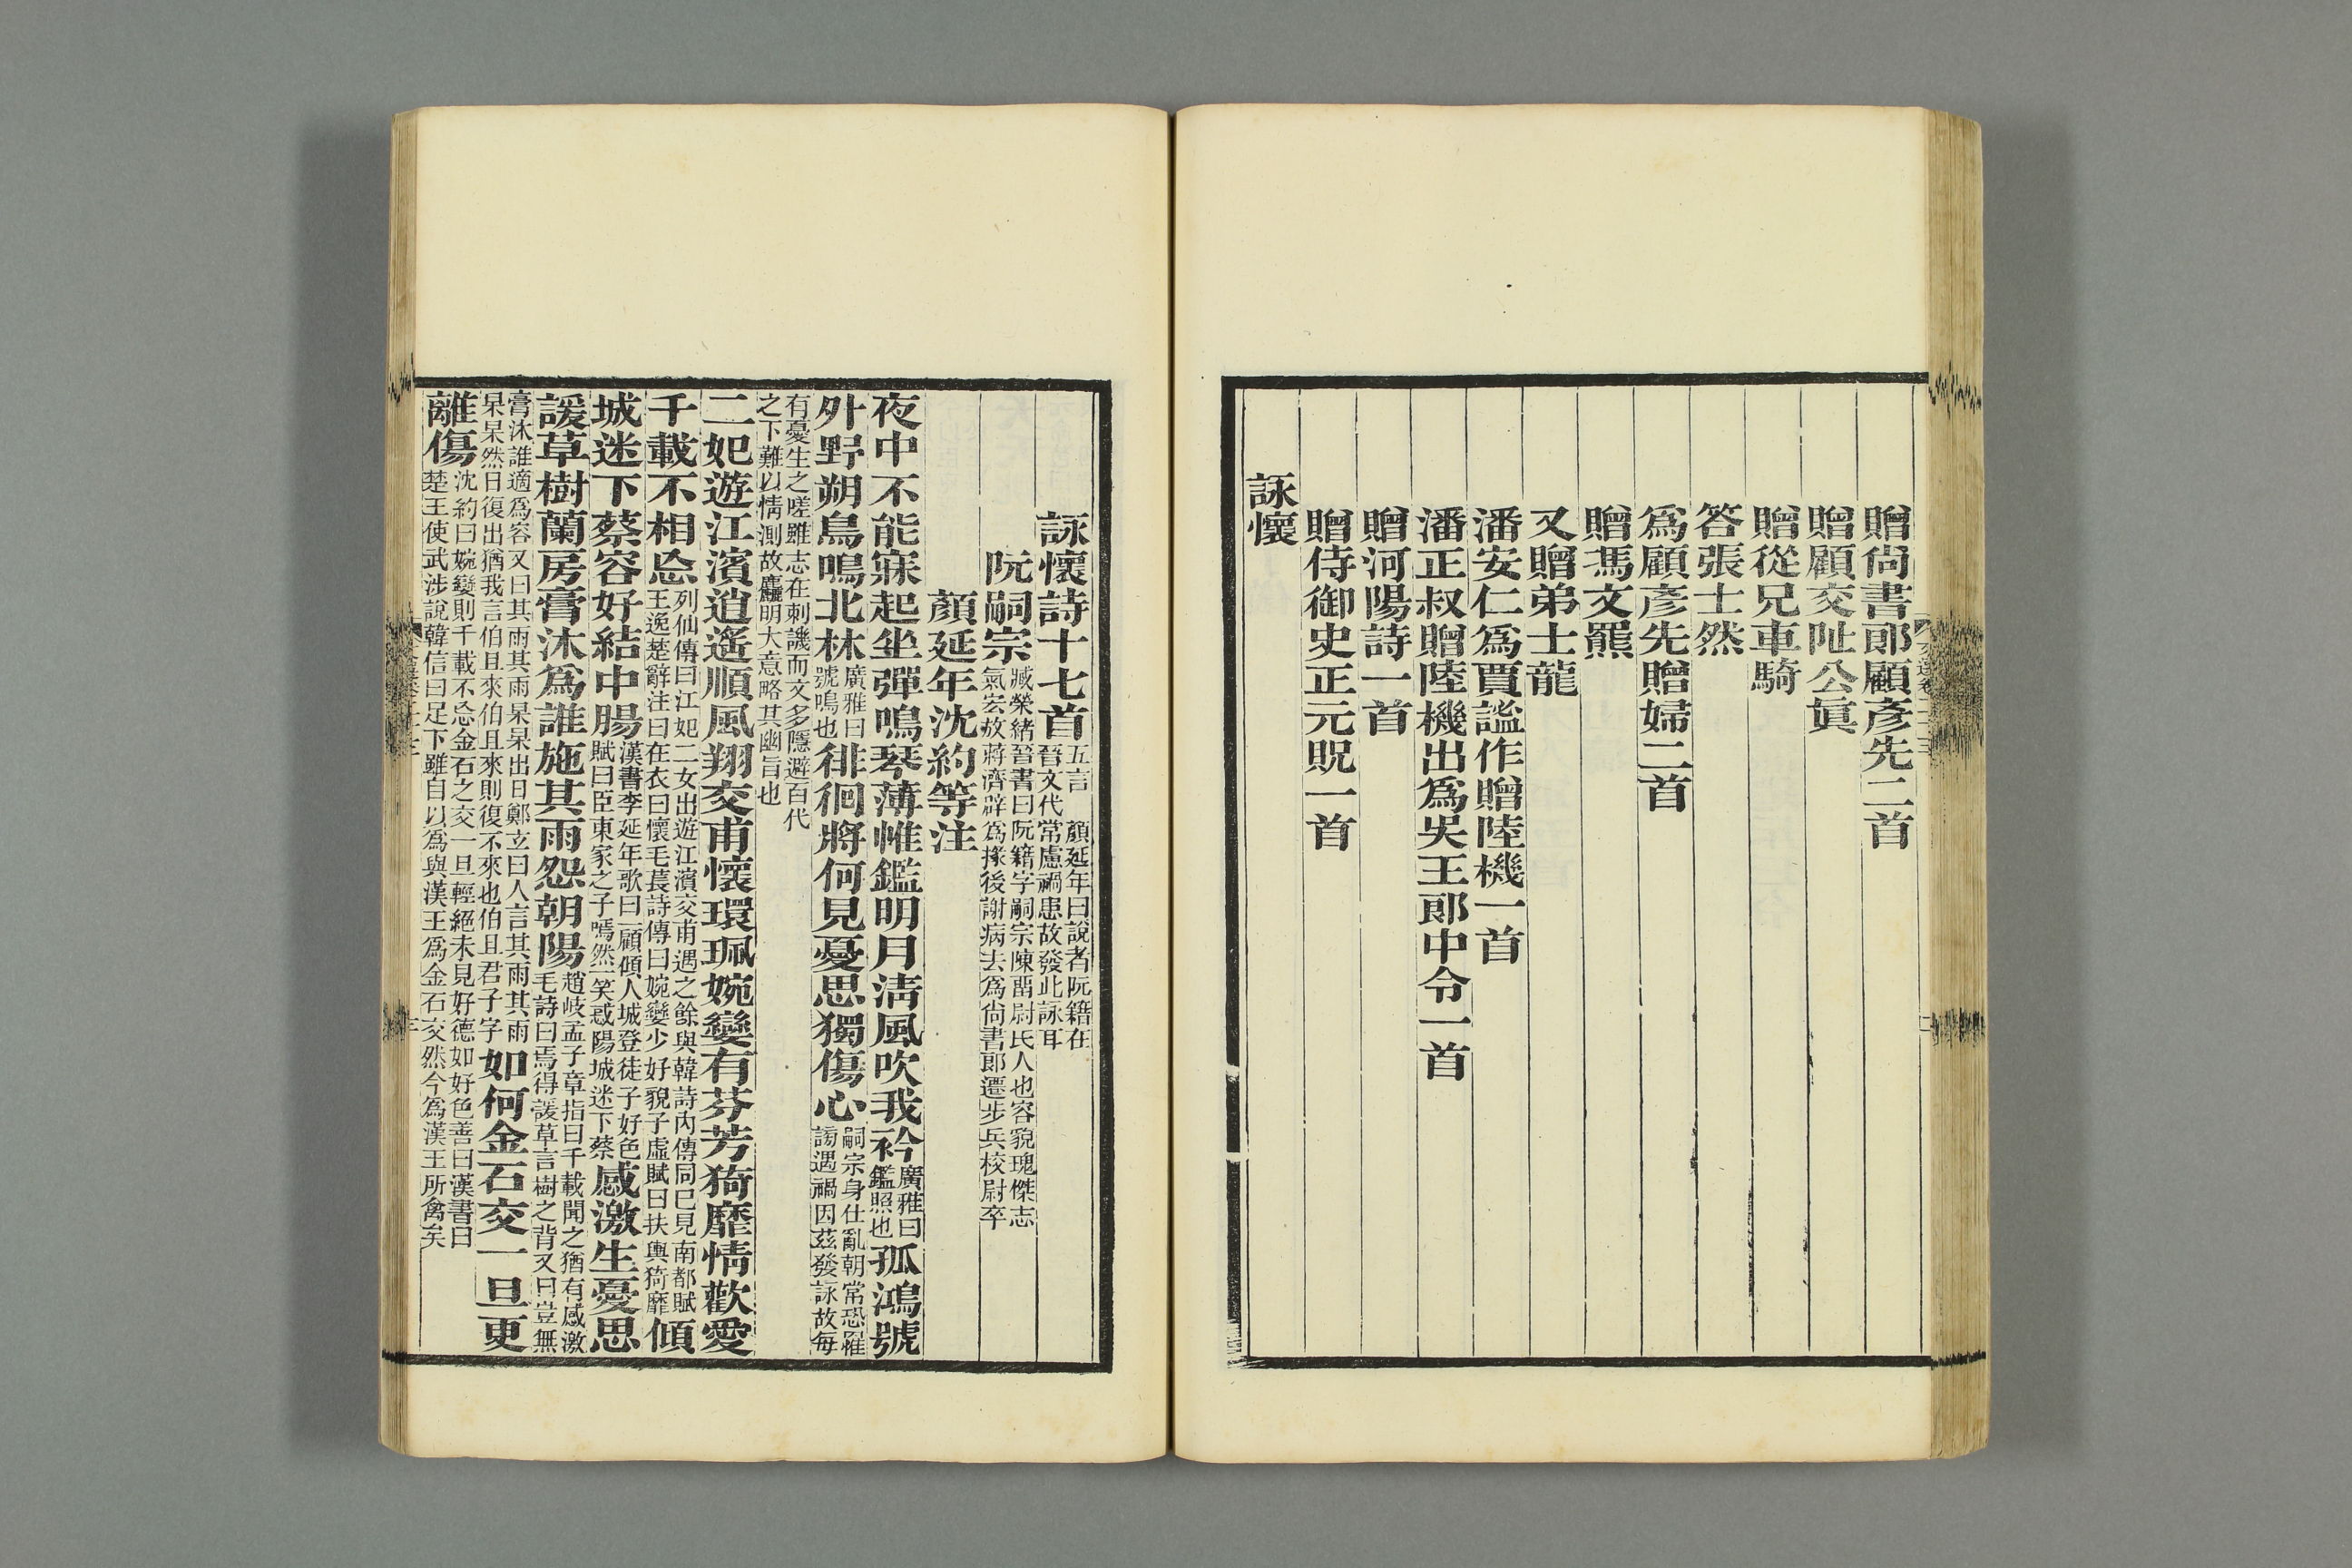 贈尚書郎顧彥先二首
贈顧交阯公眞
贈從兄車騎
答張士然
爲顧彥先贈婦二首
贈馮文羆
又贈弟士龍
潘安仁爲賈謐作贈陸機一首
潘正叔贈陸機出爲吳王郎中令一首
贈河陽詩一首
贈侍御史正元貺一首
詠懷
詠懷詩十七首五言 顏延年曰說者阮籍在晉文代常慮禍患故發此詠耳
阮嗣宗臧榮緒晉書曰阮籍字嗣宗陳畱尉氏人也容貌瑰傑志氣宏放蔣濟辟爲掾後謝病去爲尚書郎遷步兵校尉卒
顏延年沈約等注
夜中不能寐起坐彈鳴琴薄帷鑑明月清風吹我衿廣雅曰鑑照也孤鴻號
外野朔鳥鳴北林廣雅曰號鳴也徘徊將何見憂思獨傷心嗣宗身仕亂朝常恐罹謗遇禍因茲發詠故每
有憂生之嗟雖志在刺譏而文多隱避百代之下難以情測故麤明大意略其幽旨也
二妃遊江濱逍遙順風翔交甫懷環珮婉孌有芬芳猗靡情歡愛
千載不相忘列仙傳曰江妃二女出遊江濱交甫遇之餘與韓詩內傳同已見南都賦王逸楚辭注曰在衣曰懷毛萇詩傳曰婉孌少好貌子虛賦曰扶輿猗靡傾
城迷下蔡容好結中腸漢書李延年歌曰一顧傾人城登徒子好色賦曰臣東家之子嫣然一笑惑陽城迷下蔡感激生憂思
諼草樹蘭房膏沐爲誰施其雨怨朝陽趙岐孟子章指曰千載聞之猶有感激毛詩曰焉得諼草言樹之背又曰豈無
膏沐誰適爲容又曰其雨其雨杲杲出日鄭玄曰人言其雨其雨杲杲然日復出猶我言伯且來伯且來則復不來也伯且君子字如何金石交一旦更
離傷沈約曰婉孌則千載不忘金石之交一旦輕絕未見好德如好色善曰漢書曰楚王使武涉說韓信曰足下雖自以爲與漢王爲金石交然今爲漢王所禽矣